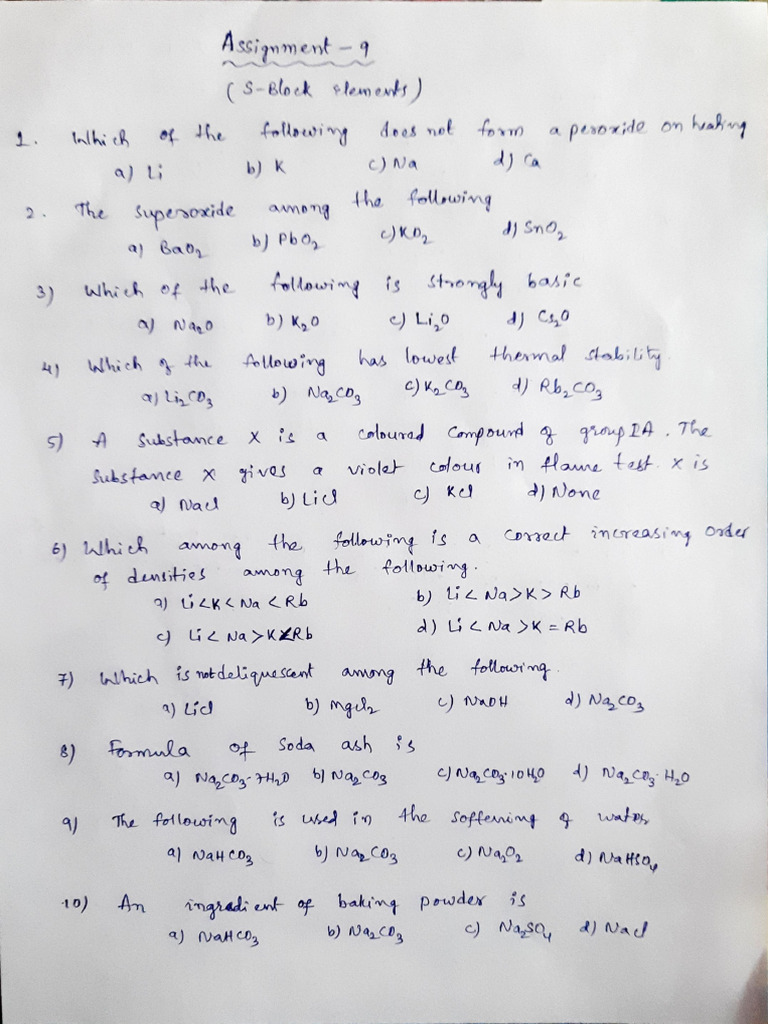 Assignment - 9
(S-Block elements)
1. Which of the following does not form a peroxide on heating
a) Li b) K c) Na d) Ca
2. The superoxide among the following
a) BaO₂ b) PbO₂ c) KO₂ d) SnO₂
3) Which of the following is strongly basic
a) Na₂O b) K₂O c) Li₂O d) Cs₂O
4) Which of the following has lowest thermal stability.
a) Li₂CO₃ b) Na₂CO₃ c) K₂CO₃ d) Rb₂CO₃
5) A substance X is a coloured compound of group IA. The
substance X gives a violet colour in flame test. X is
a) NaCl b) LiCl c) KCl d) None
6) Which among the following is a correct increasing order
of densities among the following.
a) Li < K < Na < Rb b) Li < Na > K > Rb
c) Li < Na > K < Rb d) Li < Na > K = Rb
7) Which is not deliquescent among the following.
a) LiCl b) MgCl₂ c) NaOH d) Na₂CO₃
8) Formula of Soda ash is
a) Na₂CO₃·7H₂O b) Na₂CO₃ c) Na₂CO₃·10H₂O d) Na₂CO₃·H₂O
9) The following is used in the soffening of water
a) NaHCO₃ b) Na₂CO₃ c) Na₂O₂ d) NaHSO₄
10) An ingradient of baking powder is
a) NaHCO₃ b) Na₂CO₃ c) Na₂SO₄ d) NaCl